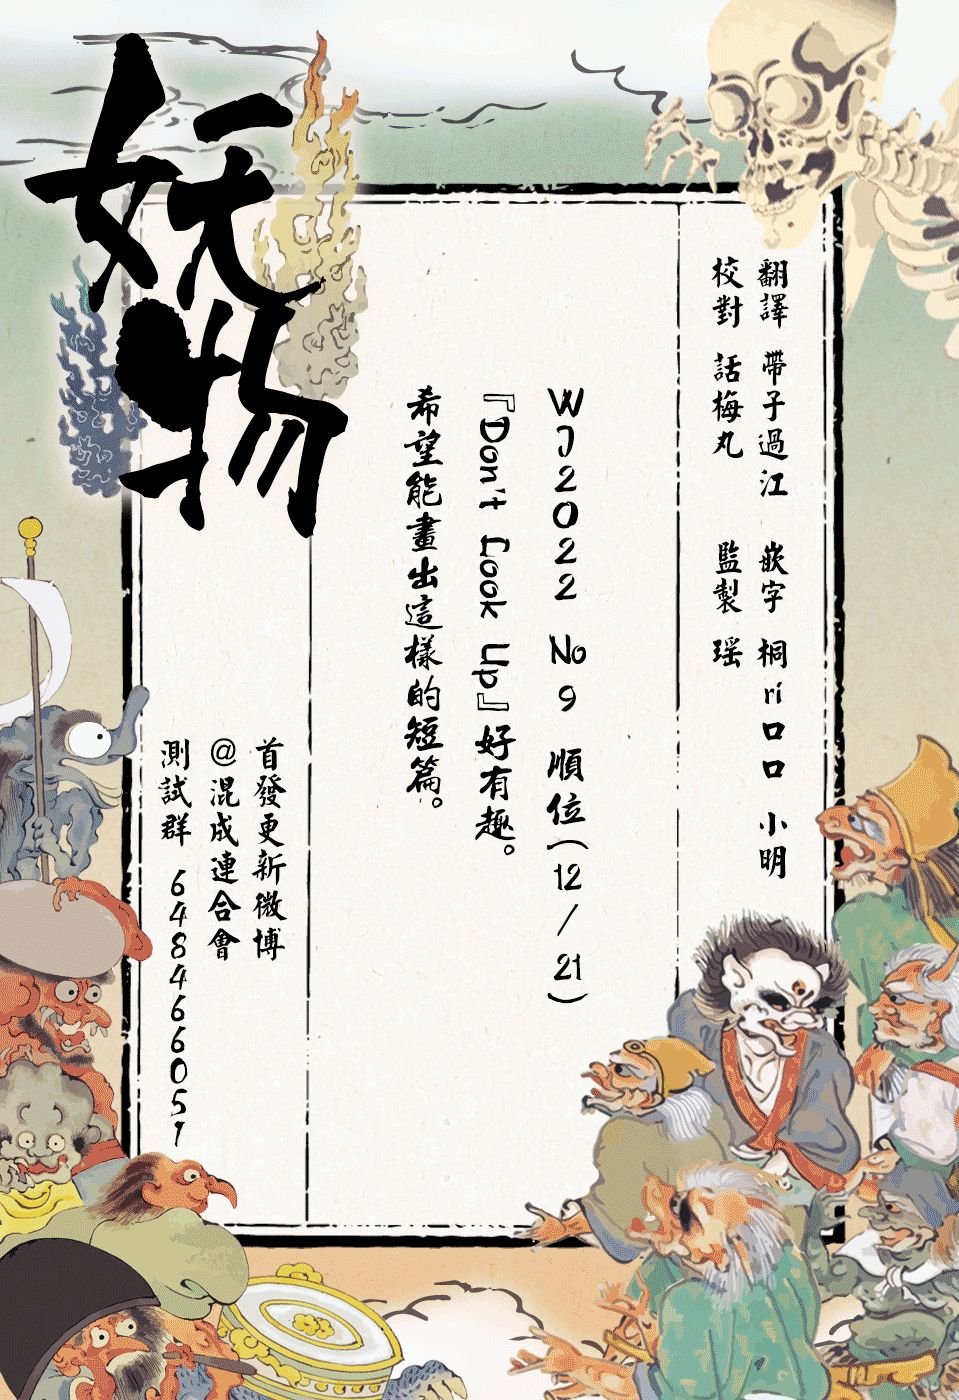 妖物
翻譯 帶子過江 嵌字 桐ri口口 小明
校對 話梅丸 監製 瑶
WJ2022 No9 順位(12/21)
『Don't Look Up』好有趣。
希望能畫出這樣的短篇。
首發更新微博
@混成連合會
測試群 648466051